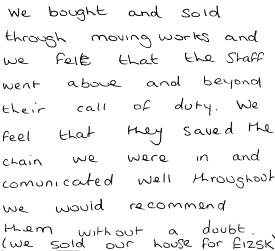 We bought and sold
through moving works and
we felt that the staff
went above and beyond
their call of duty. We
feel that they saved the
chain we were in and
comunicated well throughout
we would recommend
them without a doubt.
(we sold our house for £125K